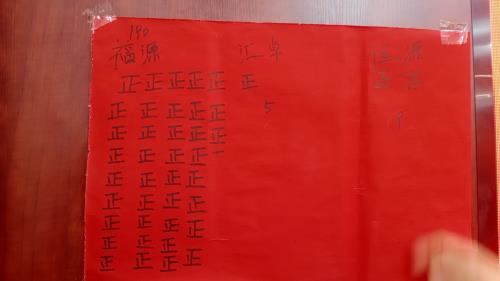 190
福源 汇卓 恒源
正正正正正 正 正
正正正正正 5
正正正正正 9
正正正正一
正正正正
正正正正
正正正正
正正正正
正正正
正正正正